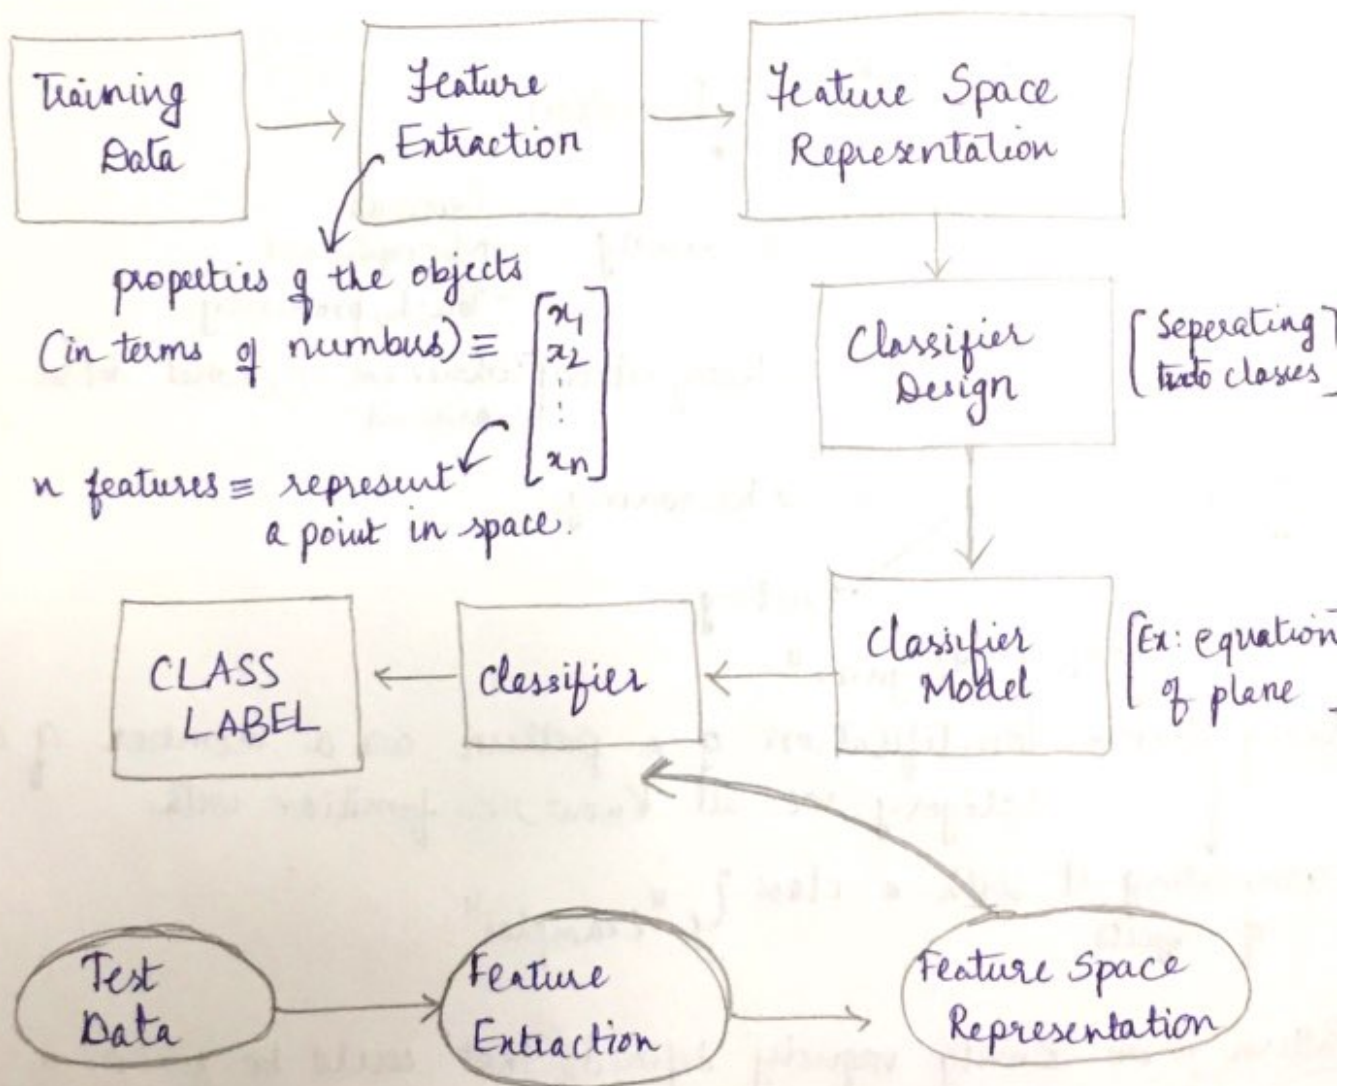 Training
Data
Feature
Extraction
Feature Space
Representation
properties of the objects
(in terms of numbers) ≡
x1
x2
⋮
xn
n features ≡ represent
a point in space.
Classifier
Design
[Seperating]
into classes
Classifier
Model
[Ex: equation
of plane]
Classifier
CLASS
LABEL
Test
Data
Feature
Extraction
Feature Space
Representation